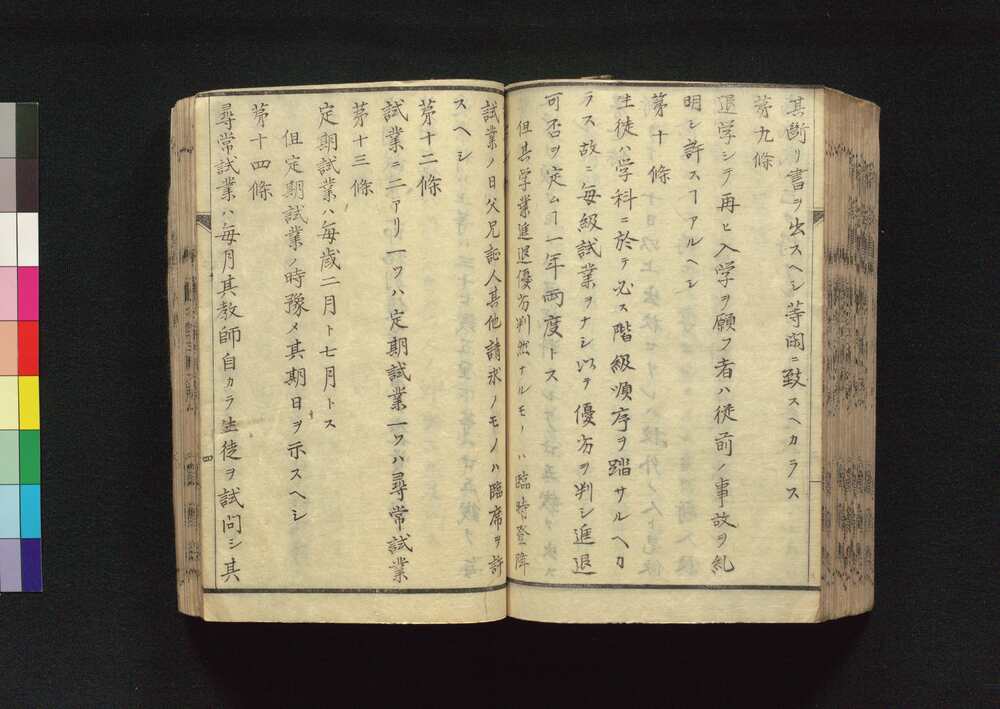 其断リ書ヲ出スヘシ等閑ニ致スヘカラス
第九條
退学シテ再ヒ入学ヲ願フ者ハ従前ノ事故ヲ糺
明シ許スヿアルヘシ
第十條
生徒ハ学科ニ於テ必ス階級順序ヲ踏サルヘカ
ラス故ニ毎級試業ヲナシ以テ優劣ヲ判シ進退
可否ヲ定ムヿ一年両度トス
但其学業進退優劣判然ナルモノハ臨時登降
試業ノ日父兄証人其他請求ノモノハ臨席ヲ許
スヘシ
第十二條
試業ニ二アリ一ツハ定期試業一ツハ尋常試業
第十三條
定期試業ハ毎歳二月ト七月トス
但定期試業ノ時豫メ其期日ヲ示スヘシ
第十四條
尋常試業ハ毎月其教師自カラ生徒ヲ試問シ其
四